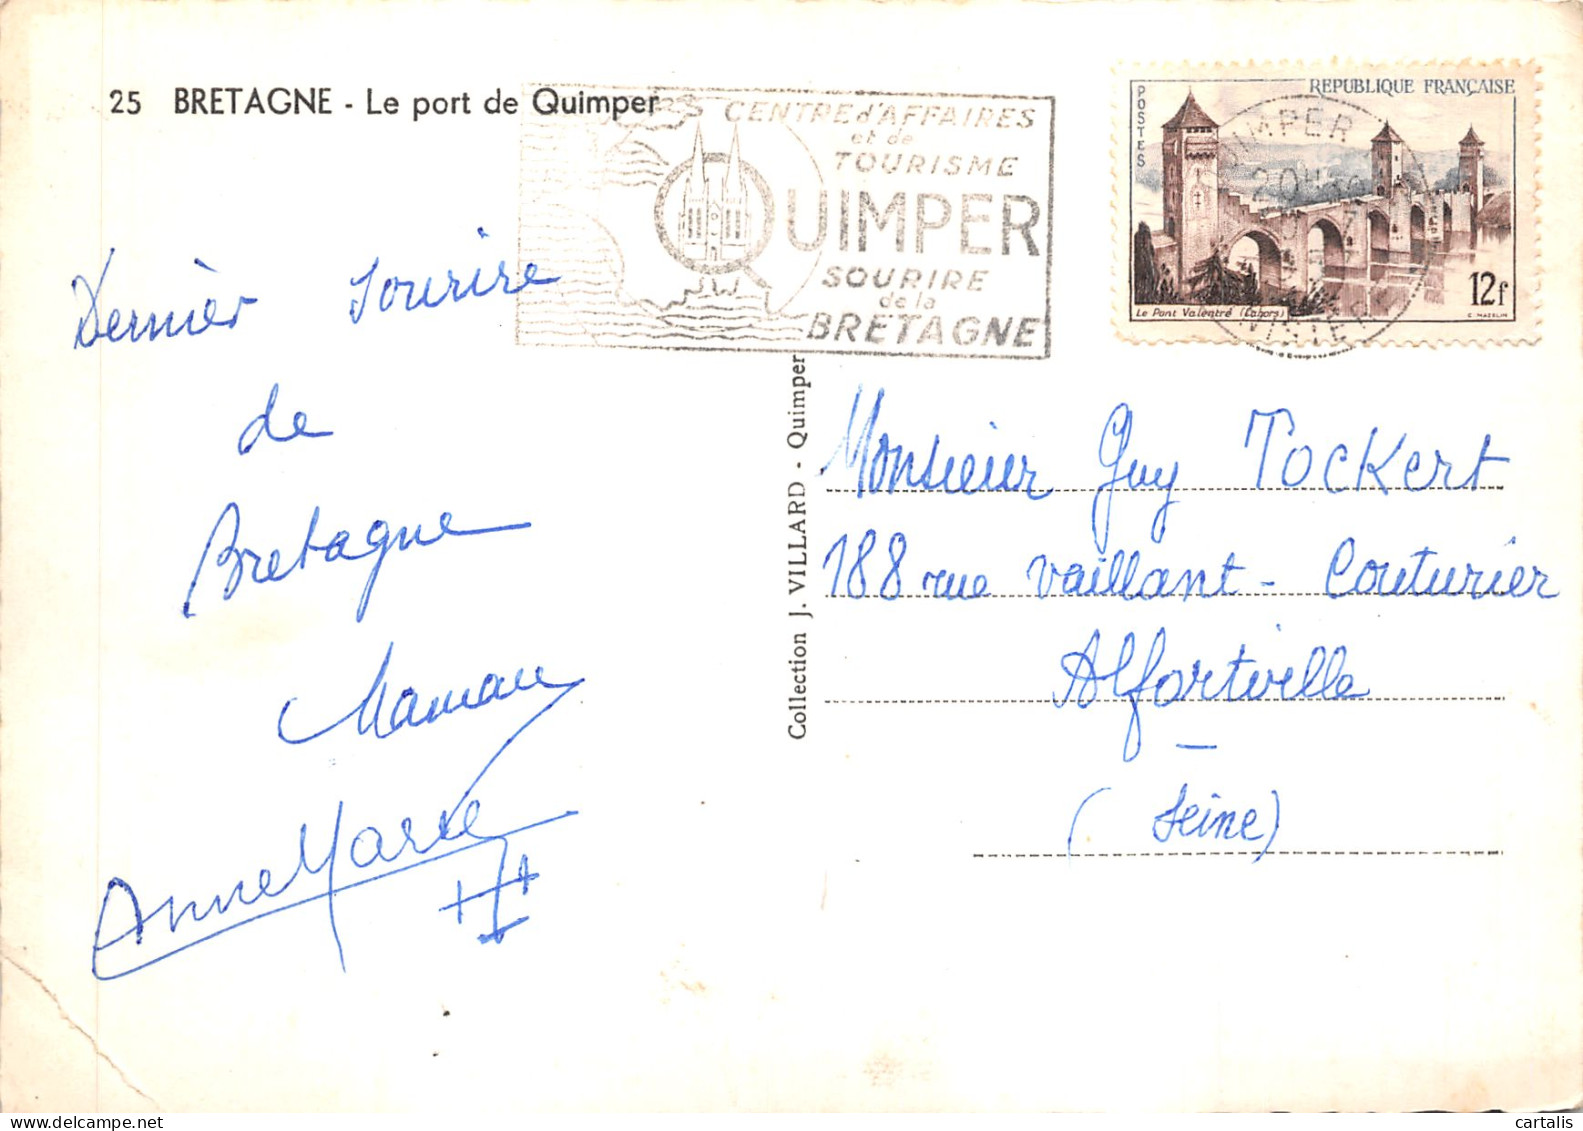 25 BRETAGNE - Le port de Quimper
CENTRE d'AFFAIRES
et de
TOURISME
QUIMPER
SOURIRE
de la
BRETAGNE
POSTES
REPUBLIQUE FRANÇAISE
12f
Le Pont Valentré (Cahors)
QUIMPER
FINISTERE
Dernier sourire
de
Bretagne
Maman
Anne Marie
Collection J. VILLARD - Quimper
Monsieur Guy Tockert
188 rue Vaillant-Couturier
Alfortville
(Seine)
cartalis